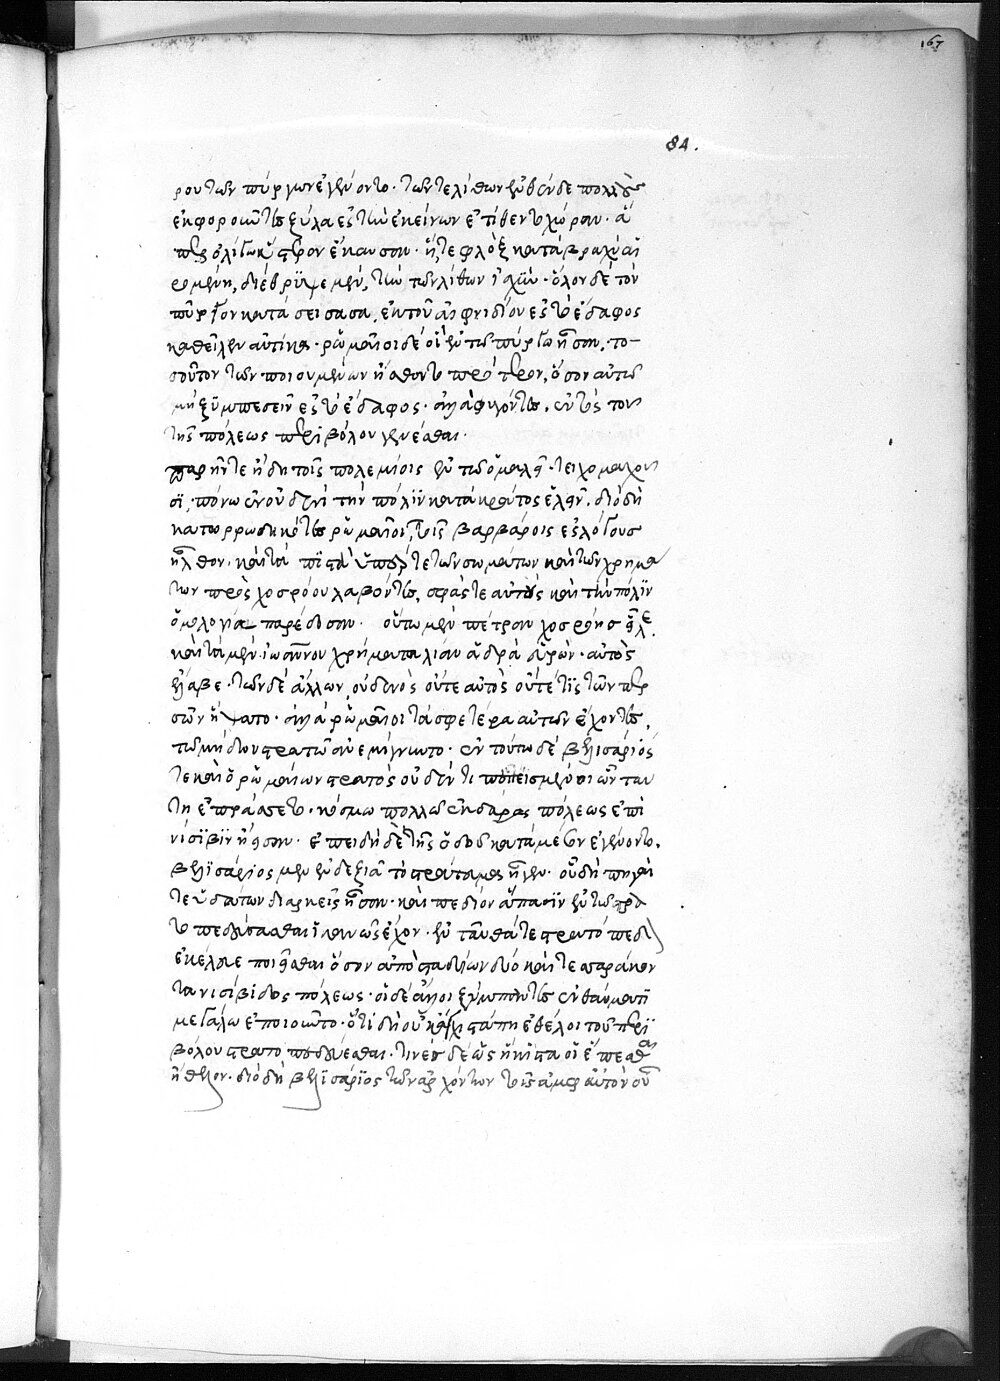 84.
167
ρου τῶν πύργων ἐγένοντο· τῶν τε λίθων ἐνθένδε πολλοὺς
ἐκφοροῦντες ξύλα ἐς τὴν ἐκείνων ἐτίθεντο χώραν· ἅ
περ ὀλίγω ὕστερον ἔκαυσαν· ἥ τε φλὸξ κατὰ βραχὺ αἰ
ρομένη, διέθρυψε μὲν τὴν τῶν λίθων ἰσχὺν· ὅλον δὲ τὸν
πύργον κατάσείσασα, ἐκ τοῦ αἰφνιδίου ἐς τὸ ἔδαφος
καθεῖλεν αὐτίκα· ῥωμαῖοι δὲ οἳ ἐν τῶ πύργω ἦσαν, το-
σοῦτον τῶν ποιουμένων ἤσθοντο πρότερον, ὅσον αὐτῶ
μὴ ξυμπεσεῖν ἐς τὸ ἔδαφος· ἀλλὰ φυγόντες, ἐντὸς τοῦ
τῆς πόλεως περιβόλου γενέσθαι·
παρῆν τε ἤδη τοῖς πολεμίοις ἐν τῶ ὁμαλεῖ· τειχομαχοῦ
σι, πόνω ἐν οὐδενὶ τὴν πόλιν κατὰ κράτος ἑλεῖν, διὸ δὴ
κατωρρωδηκότες ῥωμαῖοι, τοῖς βαρβάροις ἐς λόγους
ἦλθον· καὶ τὰ πιστὰ ὑπέρ τε τῶν σωμάτων καὶ τῶν χρημά
των πρὸς χοσρόου λαβόντες, σφᾶς τε αὐτοὺς καὶ τὴν πόλιν
ὁμολογία παρέδοσαν. οὕτω μὲν πέτραν χοσρόης εἷλε.
καὶ τὰ μὲν ἰωάννου χρήματα λίαν ἁδρὰ εὑρὼν· αὐτὸς
ἔλαβε· τῶν δὲ ἄλλων οὐδενὸς οὔτε αὐτὸς οὔτέ τις τῶν περ
σῶν ἥψατο· ἀλλὰ ῥωμαῖοι τὰ σφέτερα αὐτῶν ἔχοντες,
τῶ μήδων στρατῶ ἀνεμίγνυντο· ἐν τούτω δὲ βελισάριός
τε καὶ ὁ ῥωμαίων στρατὸς οὐδέν τι πεπεισμένοι ὧν ταύ
τη ἐπράσσετο, κόσμω πολλῶ ἐκ δάρας πόλεως ἐπὶ
νίσιβιν ἤεσαν· ἐπειδὴ δὲ τῆς ὁδοῦ κατὰ μέσον ἐγένοντο,
βελισάριος μὲν ἐν δεξιᾶ τὸ στράτευμα ἦγεν· οὗ δὴ πηγαὶ
τε ὑδάτων διαρκεῖς ἦσαν· καὶ πεδίον ἅπασιν ἐν τῶ στρα
τοπεδεύσασθαι ἱκανῶς ἔχον· ἐνταῦθά τε στρατόπεδον
ἐκέλευε ποιεῖσθαι ὅσον ἀπὸ σταδίων δύο καὶ τεσσαράκον
τα νισίβιδος πόλεως· οἱ δὲ ἄλλοι ξύμπαντες ἐν θαύματι
μεγάλω ἐποιοῦντο· ὅτι δὴ οὐκ ἄγχιστά πη ἐθέλοι τοῦ περι
βόλου στρατοπεδεύεσθαι. τινὲς δὲ ὡς ἥκιστα οἱ ἕπεσθαι
ἤθελον· διὸ δὴ βελισάριος τῶν ἀρχόντων τοῖς ἀμφ αὐτὸν οὖ